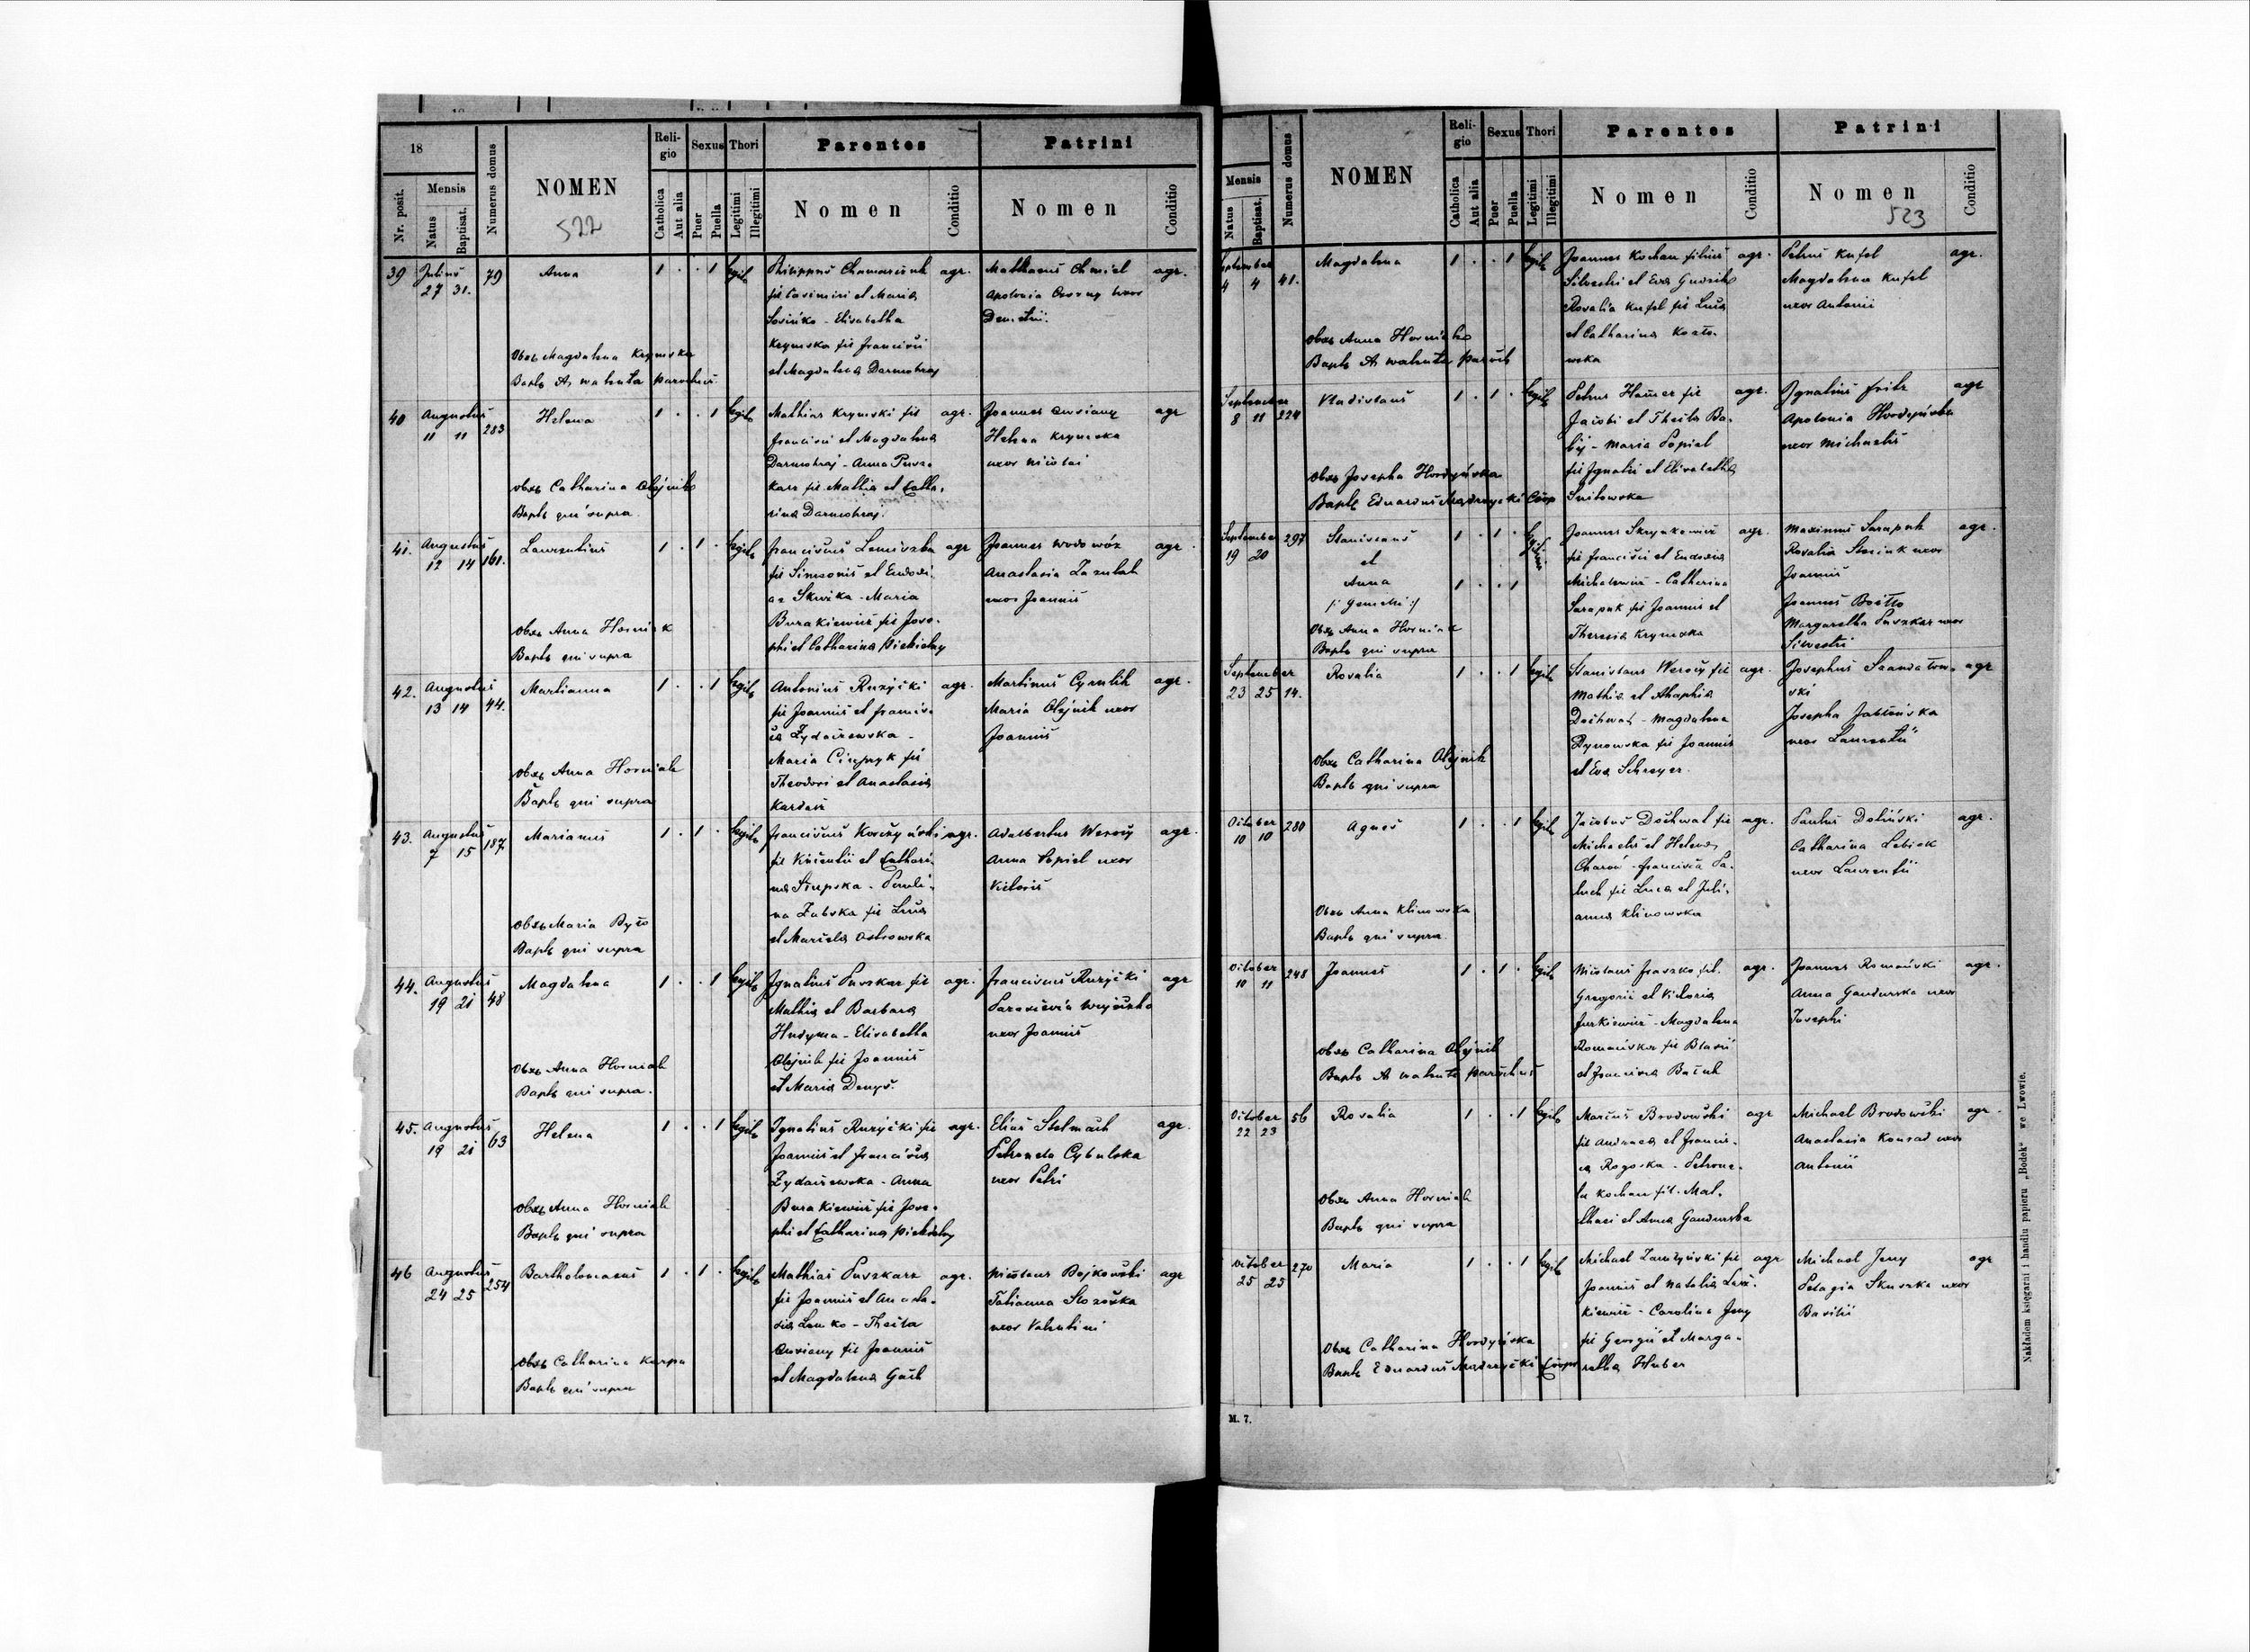 18
Nr. posit.
Mensis
Natus
Baptisat.
Numerus domus
NOMEN
522
Reli-
gio
Catholica
Aut alia
Sexus
Puer
Puella
Thori
Legitimi
Illegitimi
Parentes
Nomen
Conditio
Patrini
Nomen
Conditio
39 Julius 79 Anna 1 . . 1 legit
27 31.
Obst Magdalena Krymska
Bapt A Walenta parochus
Philippus agr.
fil Casimiri et Maria
Elisabetha
Krymska fil Francisci
et Magdalena Darmohraj
Matthaeus Chmiel agr.
Apolonia uxor
Demetrii
40 Augustus 283 Helena 1 . . 1 legit
11 11
Obst Catharina Olejnik
Bapt qui supra
Mathias Krymski fil agr.
Francisci et Magdalena
Darmohraj - Anna Pusz-
karz fil Mathia et Catha-
rina Darmohraj
Joannes agr
Helena Krymska
uxor Nicolai
41. Augustus 161. Laurentius 1 . 1 . legit
12 14
Obst Anna Horniak
Bapt qui supra
Franciscus agr
fil Simeonis et Eudoxi-
ae - Maria
Burakiewicz fil Jose-
phi et Catharina Piekielny
Joannes Wodowóz agr.
Anastasia
uxor Joannis
42. Augustus 44. Marianna 1 . . 1 legit
13 14
Obst Anna Horniak
Bapt qui supra
Antonius Ruzycki agr.
fil Joannis et Francis-
ca Zydaczewska -
Maria fil
Theodori et Anastasia
Martinus agr.
Maria Olejnik uxor
Joannis
43. Augustus 187. Marianus 1 . 1 . legit
7 15
Obst Maria
Bapt qui supra
Franciscus agr.
fil Vincentii et Cathari-
na - Pauli-
na fil Luca
et Ostrowska
Adalbertus agr.
Anna Popiel uxor
Victoris
44. Augustus 48 Magdalena 1 . . 1 legit
19 21
Obst Anna Horniak
Bapt qui supra.
Ignatius Puszkar fil agr.
Mathia et Barbara
Hudyma - Elisabetha
Olejnik fil Joannis
et Maria Denys.
Franciscus Ruzycki agr
uxor Joannis
45. Augustus 63 Helena 1 . . 1 legit
19 21
Obst Anna Horniak
Bapt qui supra
Ignatius Ruzycki fil agr.
Joannis et Francisca
Zydaczewska - Anna
Burakiewicz fil Jose-
phi et Catharina Piekielny
Elias Stelmach agr.
Petronela Cybulska
uxor Petri
46 Augustus 254 Bartholomaeus 1 . 1 . legit
24 25
Obst Catharina Karpa
Bapt qui supra
Mathias Puszkarz agr.
fil Joannis et Anasta-
sia Lemko - Thecla
fil Joannis
et Magdalena
Nicolaus Bojkowski agr
Tatianna
uxor Valentini
Mensis
Natus
Baptisat.
Numerus domus
NOMEN
Reli-
gio
Catholica
Aut alia
Sexus
Puer
Puella
Thori
Legitimi
Illegitimi
Parentes
Nomen
Conditio
Patrini
Nomen
523
Conditio
September 41. Magdalena 1 . . 1 legit
4 4
Obst Anna Horniak
Bapt A Walenta paroch
Joannes Kochan filius agr.
Silvestri et Eva
Rosalia Kufel fil Luca
et Catharina Kozło-
wska
Petrus Kufel agr.
Magdalena Kufel
uxor Antonii
September 224 Vladislaus 1 . 1 . legit
8 11
Obst Josepha Hordyńska
Bapt Eduardus Mądrzycki Coop
Petrus fil agr.
Jacobi et Thecla Ba-
bij - Maria Popiel
fil Ignatii et Elisabetha
Ignatius agr
Apolonia Hordyńska
uxor Michaelis
September 297 Stanislaus 1 . 1 . legit
19 20
et
Anna 1 . . 1
/: Gemelli :/
Obst Anna Horniak
Bapt qui supra
Joannes agr.
fil Francisci et Eudoxia
Michalewicz - Catharina
Sarapuk fil Joannis et
Theresia Krymska
Maximus Sarapuk agr.
Rosalia uxor
Joannis
Joannes
Margaretha Puszkar uxor
Silvestri
September 14. Rosalia 1 . . 1 legit
23 25
Obst Catharina Olejnik
Bapt qui supra
Stanislaus fil agr.
Mathia et Ahaphia
Dochwat - Magdalena
Dynowska fil Joannis
et Eva Schreyer.
Josephus agr
ski
Josepha Jabłońska
uxor Laurentii
October 280 Agnes 1 . . 1 legit
10 10
Obst Anna Klinowska
Bapt qui supra
Jacobus Dochwat fil agr.
Michaelis et Helena
- Francisca Pa-
luch fil Luca et Juli-
anna Klinowska
Paulus Doliński agr.
Catharina
uxor Laurentii
October 248 Joannes 1 . 1 . legit
10 11
Obst Catharina Olejnik
Bapt A Walenta parochus
Nicolaus fil. agr.
Gregorii et Victoria
Jurkiewicz - Magdalena
Romańska fil Blasii
et Francisca
Joannes Romański agr.
Anna Gandurska uxor
Josephi
October 56 Rosalia 1 . . 1 legit
22 23
Obst Anna Horniak
Bapt qui supra
Marcus Brodowski agr
fil Andreae et Francis-
ca Rogoska - Petrone-
la Kochan fil. Mat-
thaei et Anna Gandurska
Michael Brodowski agr.
Anastasia Konrad uxor
Antonii
October 270 Maria 1 . . 1 legit
25 25
Obst Catharina Hordyńska
Bapt Eduardus Mądrzycki Coop
Michael fil agr
Joannis et Natalia
kiewicz - Carolina Jeny
fil Georgii et Marga-
retha Huber
Michael Jeny agr
Pelagia uxor
Basilii
M. 7.
Nakładem księgarni i handlu papieru „Bodek“ we Lwowie.